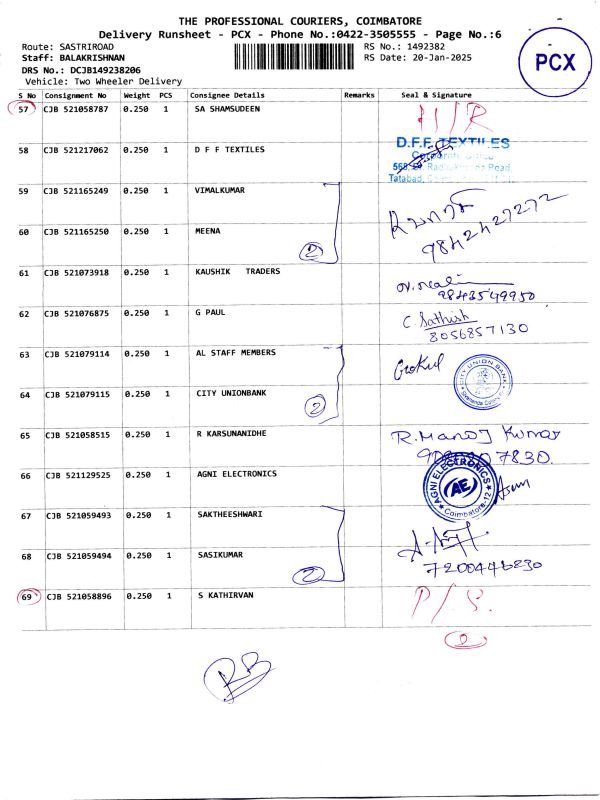 THE PROFESSIONAL COURIERS, COIMBATORE
Delivery Runsheet - PCX - Phone No.:0422-3505555 - Page No.:6
Route: SASTRIROAD
RS No.: 1492382
Staff: BALAKRISHNAN
RS Date: 20-Jan-2025
DRS No.: DCJB149238206
Vehicle: Two Wheeler Delivery
PCX
S No Consignment No Weight PCS Consignee Details Remarks Seal & Signature
57 CJB 521058787 0.250 1 SA SHAMSUDEEN
58 CJB 521217062 0.250 1 D F F TEXTILES
D.F.F. TEXTILES
59 CJB 521165249 0.250 1 VIMALKUMAR
60 CJB 521165250 0.250 1 MEENA 2
9842427272
61 CJB 521073918 0.250 1 KAUSHIK TRADERS
9843549950
62 CJB 521076875 0.250 1 G PAUL C Sathish
8056857130
63 CJB 521079114 0.250 1 AL STAFF MEMBERS Gokul
CITY UNION BANK
64 CJB 521079115 0.250 1 CITY UNIONBANK 2
65 CJB 521058515 0.250 1 R KARSUNANIDHE R. Manoj Kumar
7830.
66 CJB 521129525 0.250 1 AGNI ELECTRONICS
AGNI ELECTRONICS
AE
Coimbatore-12
67 CJB 521059493 0.250 1 SAKTHEESHWARI
68 CJB 521059494 0.250 1 SASIKUMAR 2
7200446230
69 CJB 521058896 0.250 1 S KATHIRVAN P/S.
2